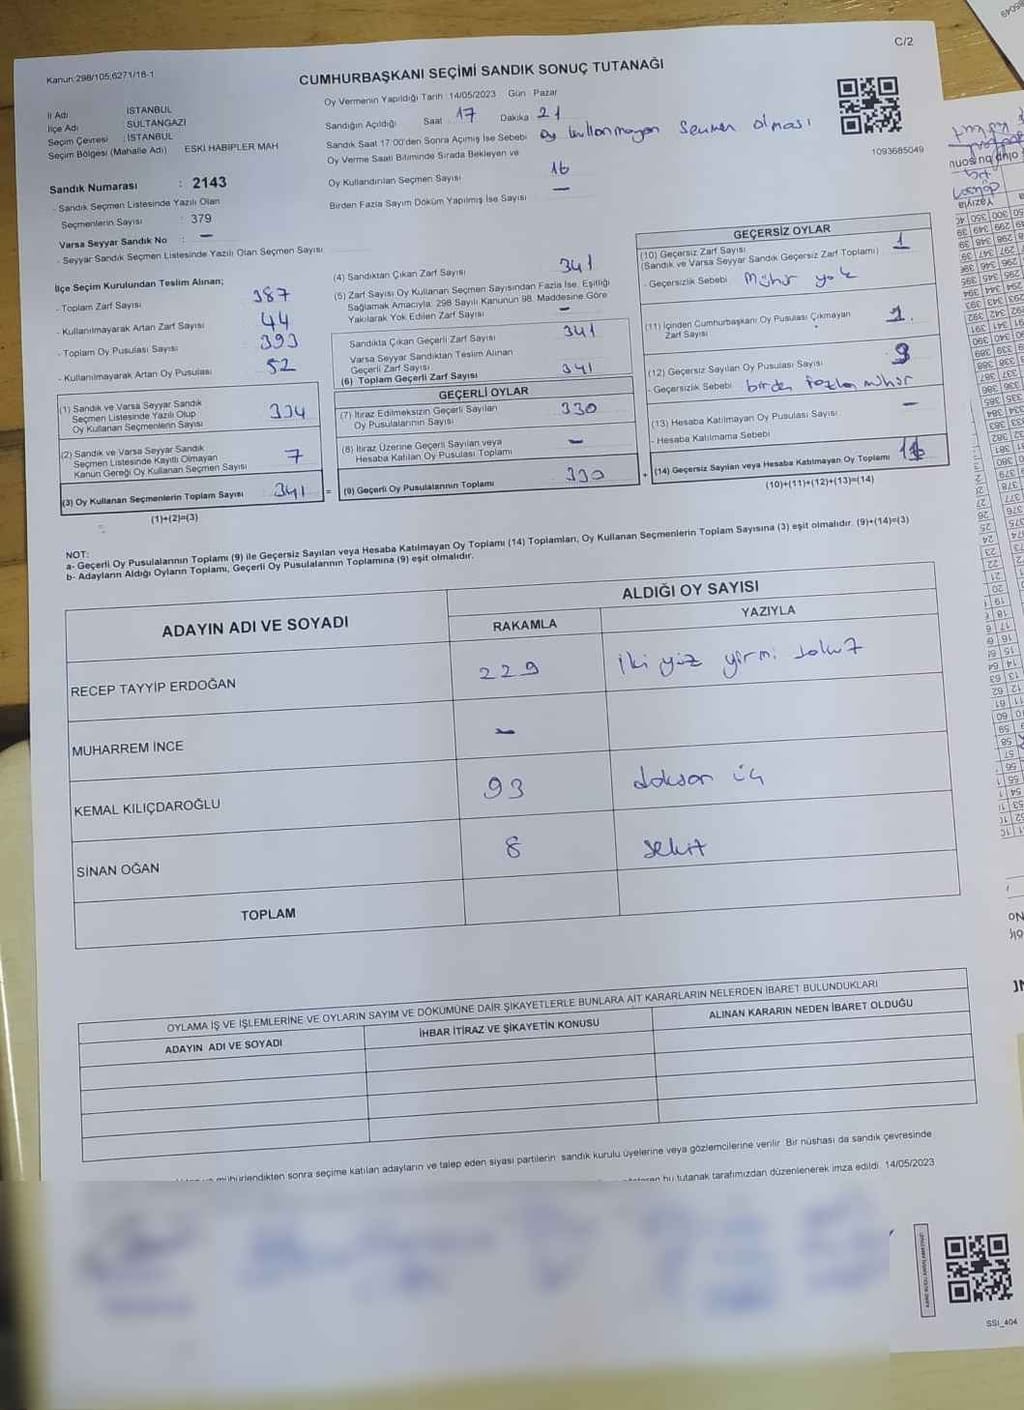 C/2
Kanun:298/105;6271/18-1
CUMHURBAŞKANI SEÇİMİ SANDIK SONUÇ TUTANAĞI
İl Adı : İSTANBUL
İlçe Adı : SULTANGAZİ
Seçim Çevresi : İSTANBUL
Seçim Bölgesi (Mahalle Adı) ESKİ HABİPLER MAH
Sandık Numarası : 2143
- Sandık Seçmen Listesinde Yazılı Olan
Seçmenlerin Sayısı : 379
Varsa Seyyar Sandık No : —
- Seyyar Sandık Seçmen Listesinde Yazılı Olan Seçmen Sayısı
Oy Vermenin Yapıldığı Tarih :14/05/2023 Gün : Pazar
Sandığın Açıldığı Saat 17 Dakika 21
Sandık Saat 17:00'den Sonra Açımış İse Sebebi Oy kullanmayan Seçmen olması
Oy Verme Saati Bitiminde Sırada Bekleyen ve
Oy Kullandırılan Seçmen Sayısı 16
Birden Fazla Sayım Döküm Yapılmış İse Sayısı —
1093685049
İlçe Seçim Kurulundan Teslim Alınan;
- Toplam Zarf Sayısı 387
- Kullanılmayarak Artan Zarf Sayısı 44
- Toplam Oy Pusulası Sayısı 393
- Kullanılmayarak Artan Oy Pusulası 52
(1) Sandık ve Varsa Seyyar Sandık
Seçmen Listesinde Yazılı Olup
Oy Kullanan Seçmenlerin Sayısı 334
(2) Sandık ve Varsa Seyyar Sandık
Seçmen Listesinde Kayıtlı Olmayan
Kanun Gereği Oy Kullanan Seçmen Sayısı 7
(3) Oy Kullanan Seçmenlerin Toplam Sayısı 341 =
(1)+(2)=(3)
(4) Sandıktan Çıkan Zarf Sayısı 341
(5) Zarf Sayısı Oy Kullanan Seçmen Sayısından Fazla İse, Eşitliği
Sağlamak Amacıyla; 298 Sayılı Kanunun 98. Maddesine Göre
Yakılarak Yok Edilen Zarf Sayısı —
Sandıkta Çıkan Geçerli Zarf Sayısı 341
Varsa Seyyar Sandıktan Teslim Alınan
Geçerli Zarf Sayısı
(6) Toplam Geçerli Zarf Sayısı 341
GEÇERLİ OYLAR
(7) İtiraz Edilmeksizin Geçerli Sayılan
Oy Pusulalarının Sayısı 330
(8) İtiraz Üzerine Geçerli Sayılan veya
Hesaba Katılan Oy Pusulası Toplamı —
(9) Geçerli Oy Pusulalarının Toplamı 330 +
GEÇERSİZ OYLAR
(10) Geçersiz Zarf Sayısı
(Sandık ve Varsa Seyyar Sandık Geçersiz Zarf Toplamı) 1
- Geçersizlik Sebebi Mühür yok
(11) İçinden Cumhurbaşkanı Oy Pusulası Çıkmayan
Zarf Sayısı 1.
(12) Geçersiz Sayılan Oy Pusulası Sayısı 9
- Geçersizlik Sebebi birden fazla mühür
(13) Hesaba Katılmayan Oy Pusulası Sayısı —
- Hesaba Katılmama Sebebi
(14) Geçersiz Sayılan veya Hesaba Katılmayan Oy Toplamı
(10)+(11)+(12)+(13)=(14)
NOT:
a- Geçerli Oy Pusulalarının Toplamı (9) ile Geçersiz Sayılan veya Hesaba Katılmayan Oy Toplamı (14) Toplamları, Oy Kullanan Seçmenlerin Toplam Sayısına (3) eşit olmalıdır. (9)+(14)=(3)
b- Adayların Aldığı Oyların Toplamı, Geçerli Oy Pusulalarının Toplamına (9) eşit olmalıdır.
ADAYIN ADI VE SOYADI
ALDIĞI OY SAYISI
RAKAMLA YAZIYLA
RECEP TAYYİP ERDOĞAN 229 iki yüz yirmi dokuz
MUHARREM İNCE —
KEMAL KILIÇDAROĞLU 93 doksan üç
SİNAN OĞAN 8 sekiz
TOPLAM
OYLAMA İŞ VE İŞLEMLERİNE VE OYLARIN SAYIM VE DÖKÜMÜNE DAİR ŞİKAYETLERLE BUNLARA AİT KARARLARIN NELERDEN İBARET BULUNDUKLARI
ADAYIN ADI VE SOYADI İHBAR İTİRAZ VE ŞİKAYETİN KONUSU ALINAN KARARIN NEDEN İBARET OLDUĞU
mühürlendikten sonra seçime katılan adayların ve talep eden siyasi partilerin sandık kurulu üyelerine veya gözlemcilerine verilir. Bir nüshası da sandık çevresinde
bu tutanak tarafımızdan düzenlenerek imza edildi. 14/05/2023
SSI_404